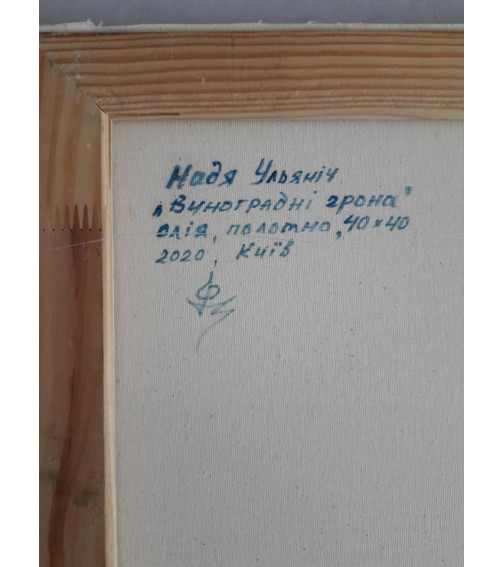 Надя Ульяніч
„Виноградні грона"
олія, полотно, 40×40
2020, Київ